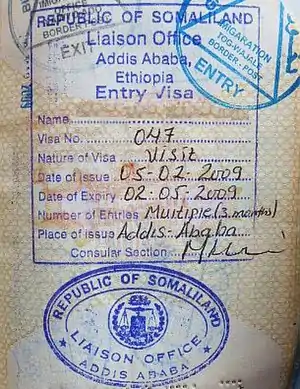 REPUBLIC OF SOMALILAND
Liaison Office
Addis Ababa,
Ethiopia
Entry Visa
Name
Visa No. 047
Nature of Visa Visit
Date of issue 05-02-2009
Date of Expiry 02-05-2009
Number of Entries Multiple (3 months)
Place of issue Addis-Ababa
Consular Section
REPUBLIC OF SOMALILAND
LIAISON OFFICE
ADDIS ABABA
EXIT
IMMIGRATION
TOG-WAJALE
BORDER-POST
ENTRY